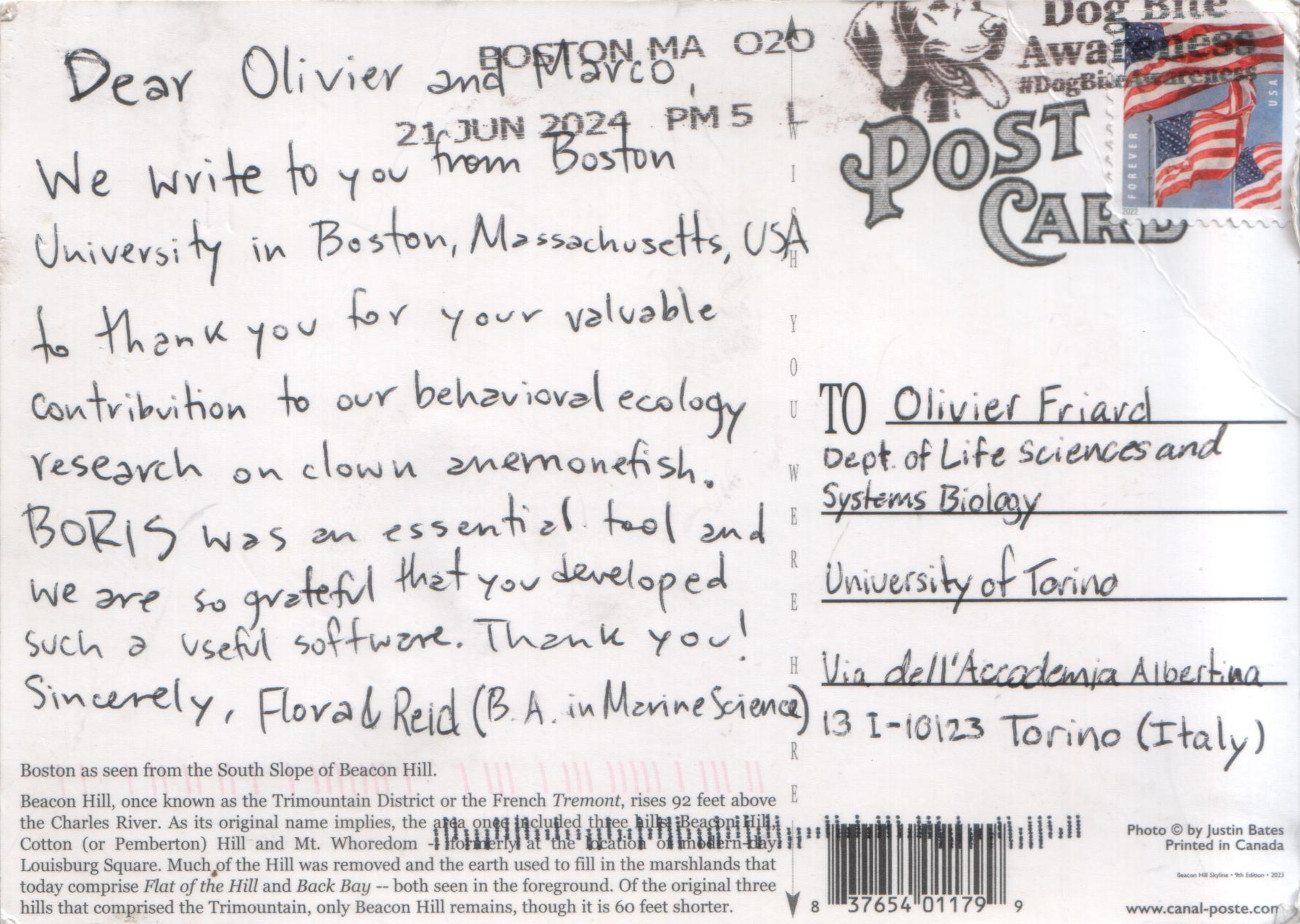 Dear Olivier and Marco,
We write to you from Boston
University in Boston, Massachusetts, USA
to thank you for your valuable
contribuition to our behavioral ecology
research on clown anemonefish.
BORIS was an essential tool and
we are so grateful that you developed
such a useful software. Thank you!
Sincerely, Flora & Reid (B.A. in Marine Science)
Boston as seen from the South Slope of Beacon Hill.
Beacon Hill, once known as the Trimountain District or the French Tremont, rises 92 feet above
the Charles River. As its original name implies, the area once included three hills: Beacon Hill,
Cotton (or Pemberton) Hill and Mt. Whoredom -- formerly at the location of modern-day
Louisburg Square. Much of the Hill was removed and the earth used to fill in the marshlands that
today comprise Flat of the Hill and Back Bay -- both seen in the foreground. Of the original three
hills that comprised the Trimountain, only Beacon Hill remains, though it is 60 feet shorter.
BOSTON MA 020
21 JUN 2024 PM 5 L
WISH YOU WERE HERE
Dog Bite
Awareness
#DogBiteAwareness
FOREVER
USA
2022
POST
CARD
TO Olivier Friard
Dept. of Life Sciences and
Systems Biology
University of Torino
Via dell'Accademia Albertina
13 I-10123 Torino (Italy)
8 37654 01179 9
Photo © by Justin Bates
Printed in Canada
Beacon Hill Skyline • 9th Edition • 2023
www.canal-poste.com